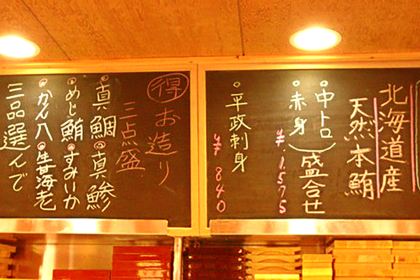 北海道産
天然本鮪
中トロ
赤身
盛合せ
¥1575
平政刺身
¥840
得 お造り
三点盛
真鯛 真鯵
めじ鮪 すみいか
かん八 生海老
三品選んで